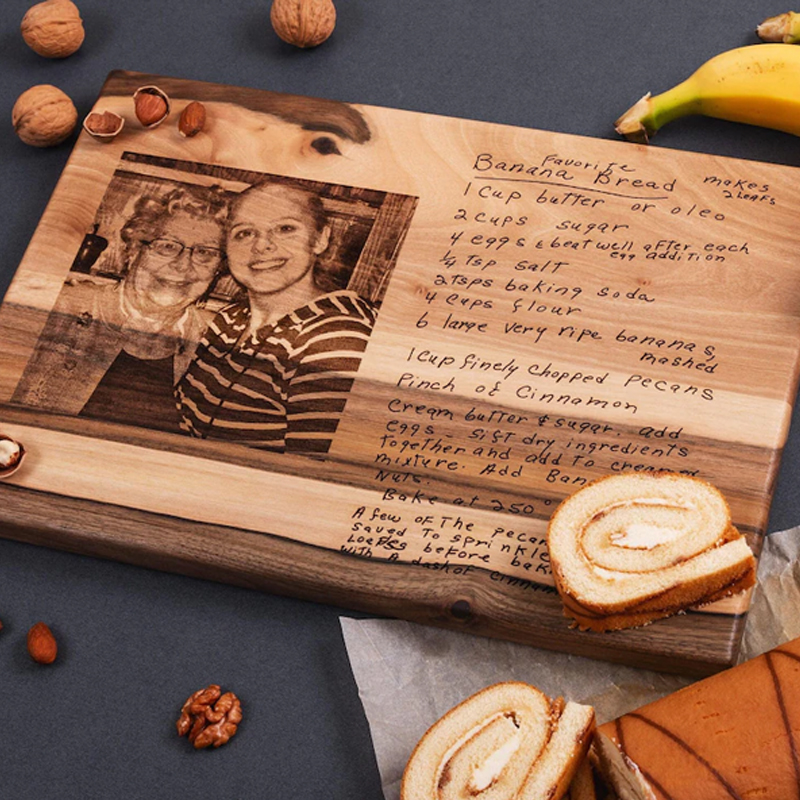 Favorite
Banana Bread makes
2 LEAFS
1 Cup butter or oleo
2 cups sugar
4 eggs & beat well after each
egg addition
1/4 Tsp salt
2 Tsps baking soda
4 Cups flour
6 large very ripe bananas,
mashed
1 Cup finely chopped pecans
Pinch of Cinnamon
Cream butter & sugar. add
eggs - sift dry ingredients
together and add to creamed
mixture. Add Ban
Nuts.
Bake at 250°
A few of The pecan
saved To sprinkle
before bak
with A dash of cinnam